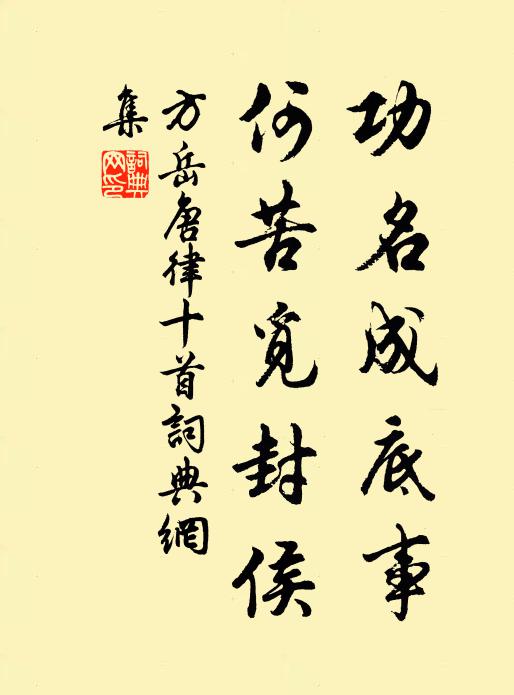 功名成底事
何苦覓封侯
方岳唐律十首詞典網
集
詞典網印